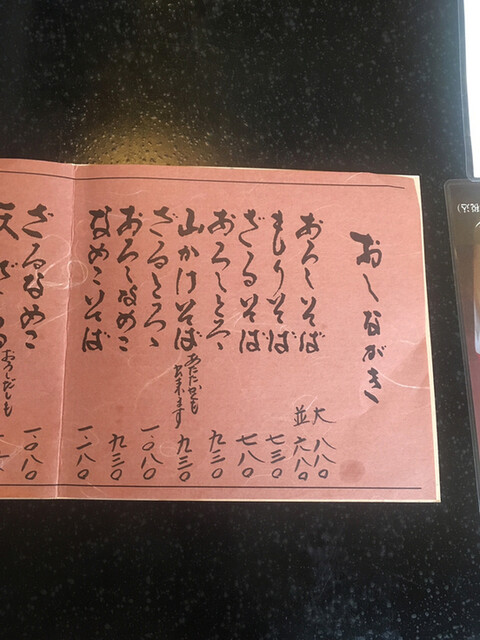 おしながき
おろしそば 大 八八〇
並 六八〇
もりそば 七三〇
ざるそば 七八〇
おろしとろろ 九三〇
山かけそば あたたかいも出来ます 九三〇
ざるとろろ 一、〇八〇
おろしなめこ 九三〇
なめこそば 一、一八〇
ざるなめこ 一、〇八〇
天ざる おろしだしも
税込)